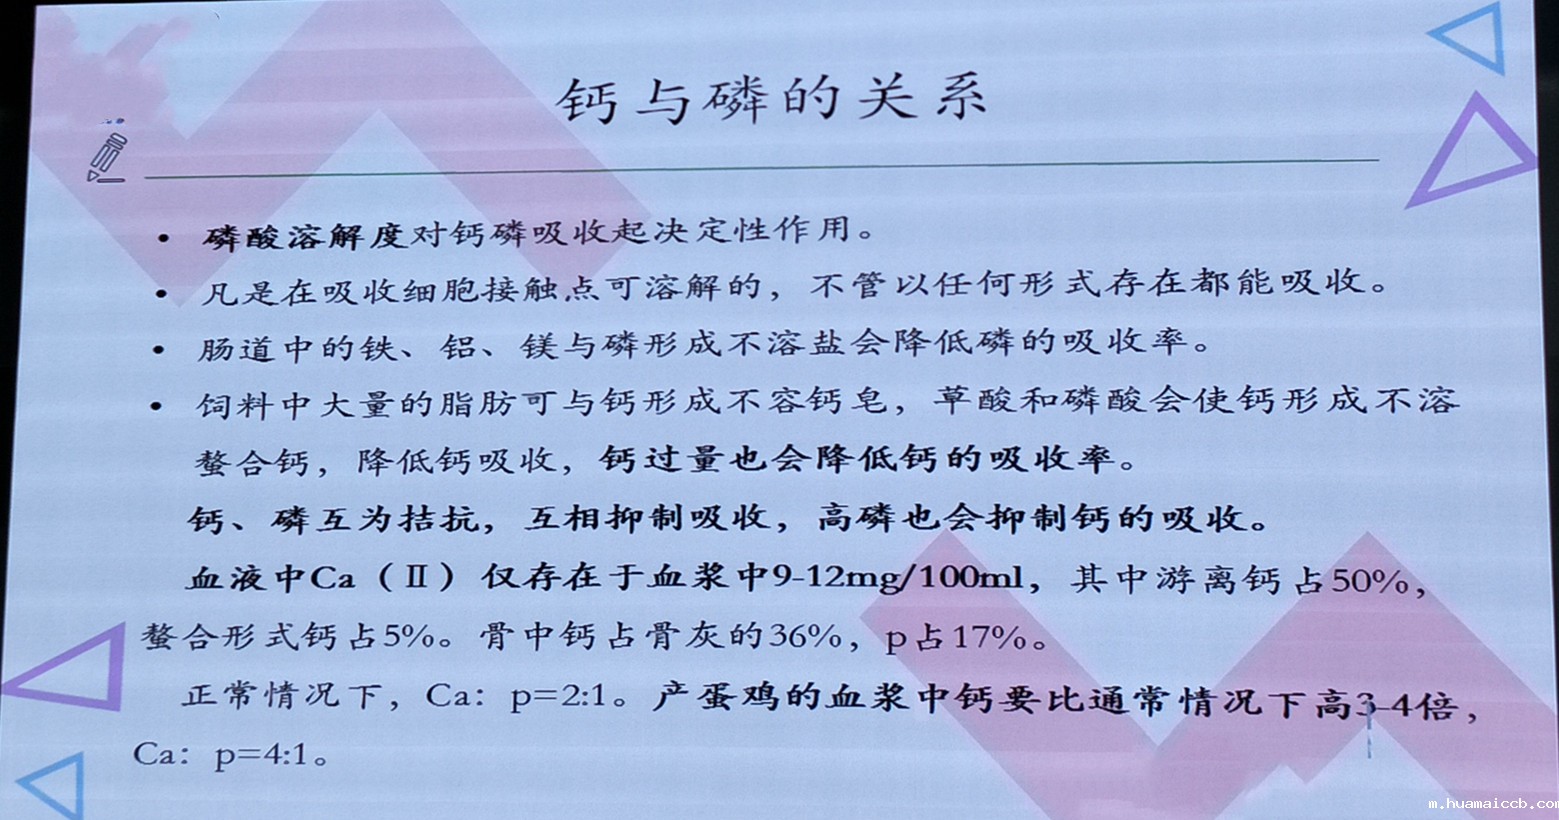 钙与磷的关系
• 磷酸溶解度对钙磷吸收起决定性作用。
• 凡是在吸收细胞接触点可溶解的，不管以任何形式存在都能吸收。
• 肠道中的铁、铝、镁与磷形成不溶盐会降低磷的吸收率。
• 饲料中大量的脂肪可与钙形成不容钙皂，草酸和磷酸会使钙形成不溶
螯合钙，降低钙吸收，钙过量也会降低钙的吸收率。
钙、磷互为拮抗，互相抑制吸收，高磷也会抑制钙的吸收。
血液中Ca（Ⅱ）仅存在于血浆中9-12mg/100ml，其中游离钙占50%，
螯合形式钙占5%。骨中钙占骨灰的36%，p占17%。
正常情况下，Ca：p=2:1。产蛋鸡的血浆中钙要比通常情况下高3-4倍，
Ca：p=4:1。
m.huamaiccb.com